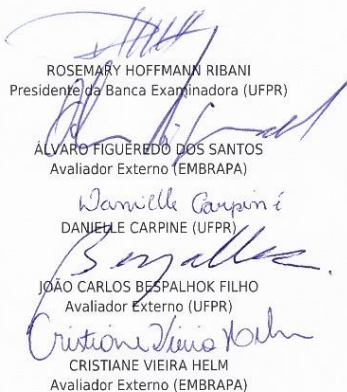 ROSEMARY HOFFMANN RIBANI
Presidente da Banca Examinadora (UFPR)
ÁLVARO FIGUEREDO DOS SANTOS
Avaliador Externo (EMBRAPA)
Danielle Carpiné
DANIELLE CARPINE (UFPR)
Bespalhok
JOÃO CARLOS BESPALHOK FILHO
Avaliador Externo (UFPR)
Cristiane Vieira Helm
CRISTIANE VIEIRA HELM
Avaliador Externo (EMBRAPA)